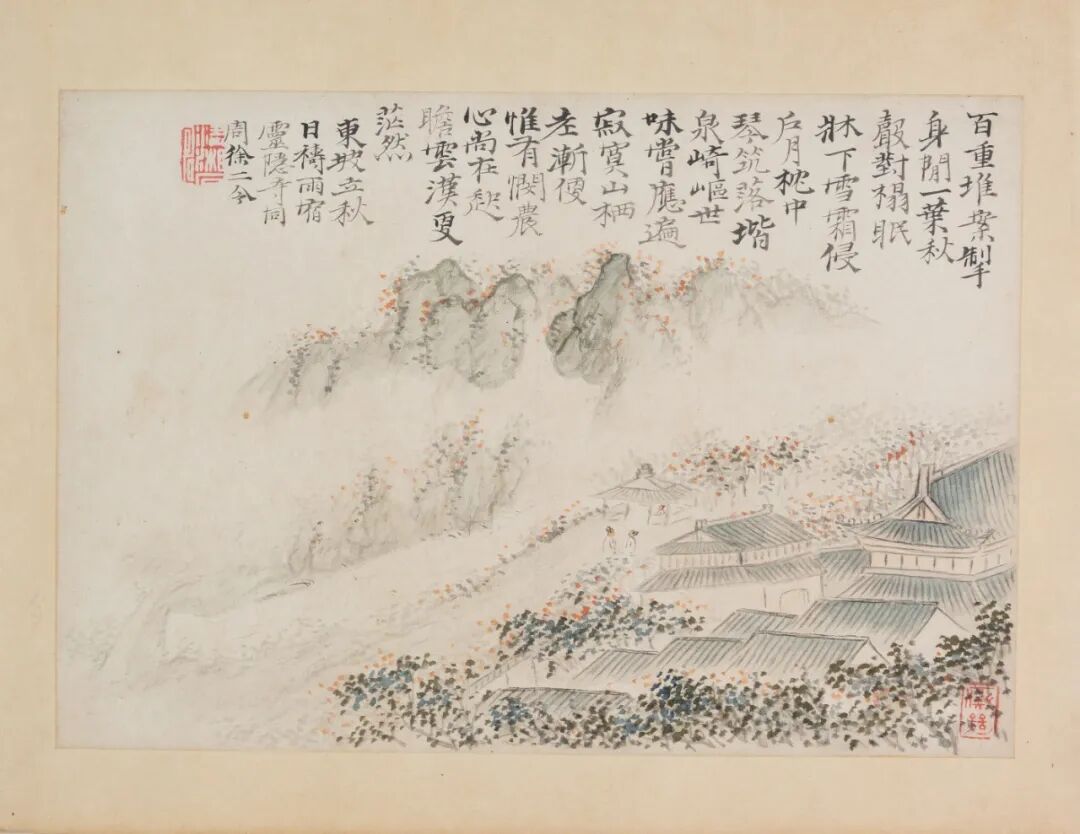 百重堆案掣
身閒一葉秋
聲對榻眠
牀下雪霜侵
戶月枕中
琴筑落堦
泉崎嶇世
味嘗應遍
寂寞山栖
老漸便
惟有憫農
心尚在起
瞻雲漢更
茫然
東坡立秋
日禱雨宿
靈隱寺同
周徐二令